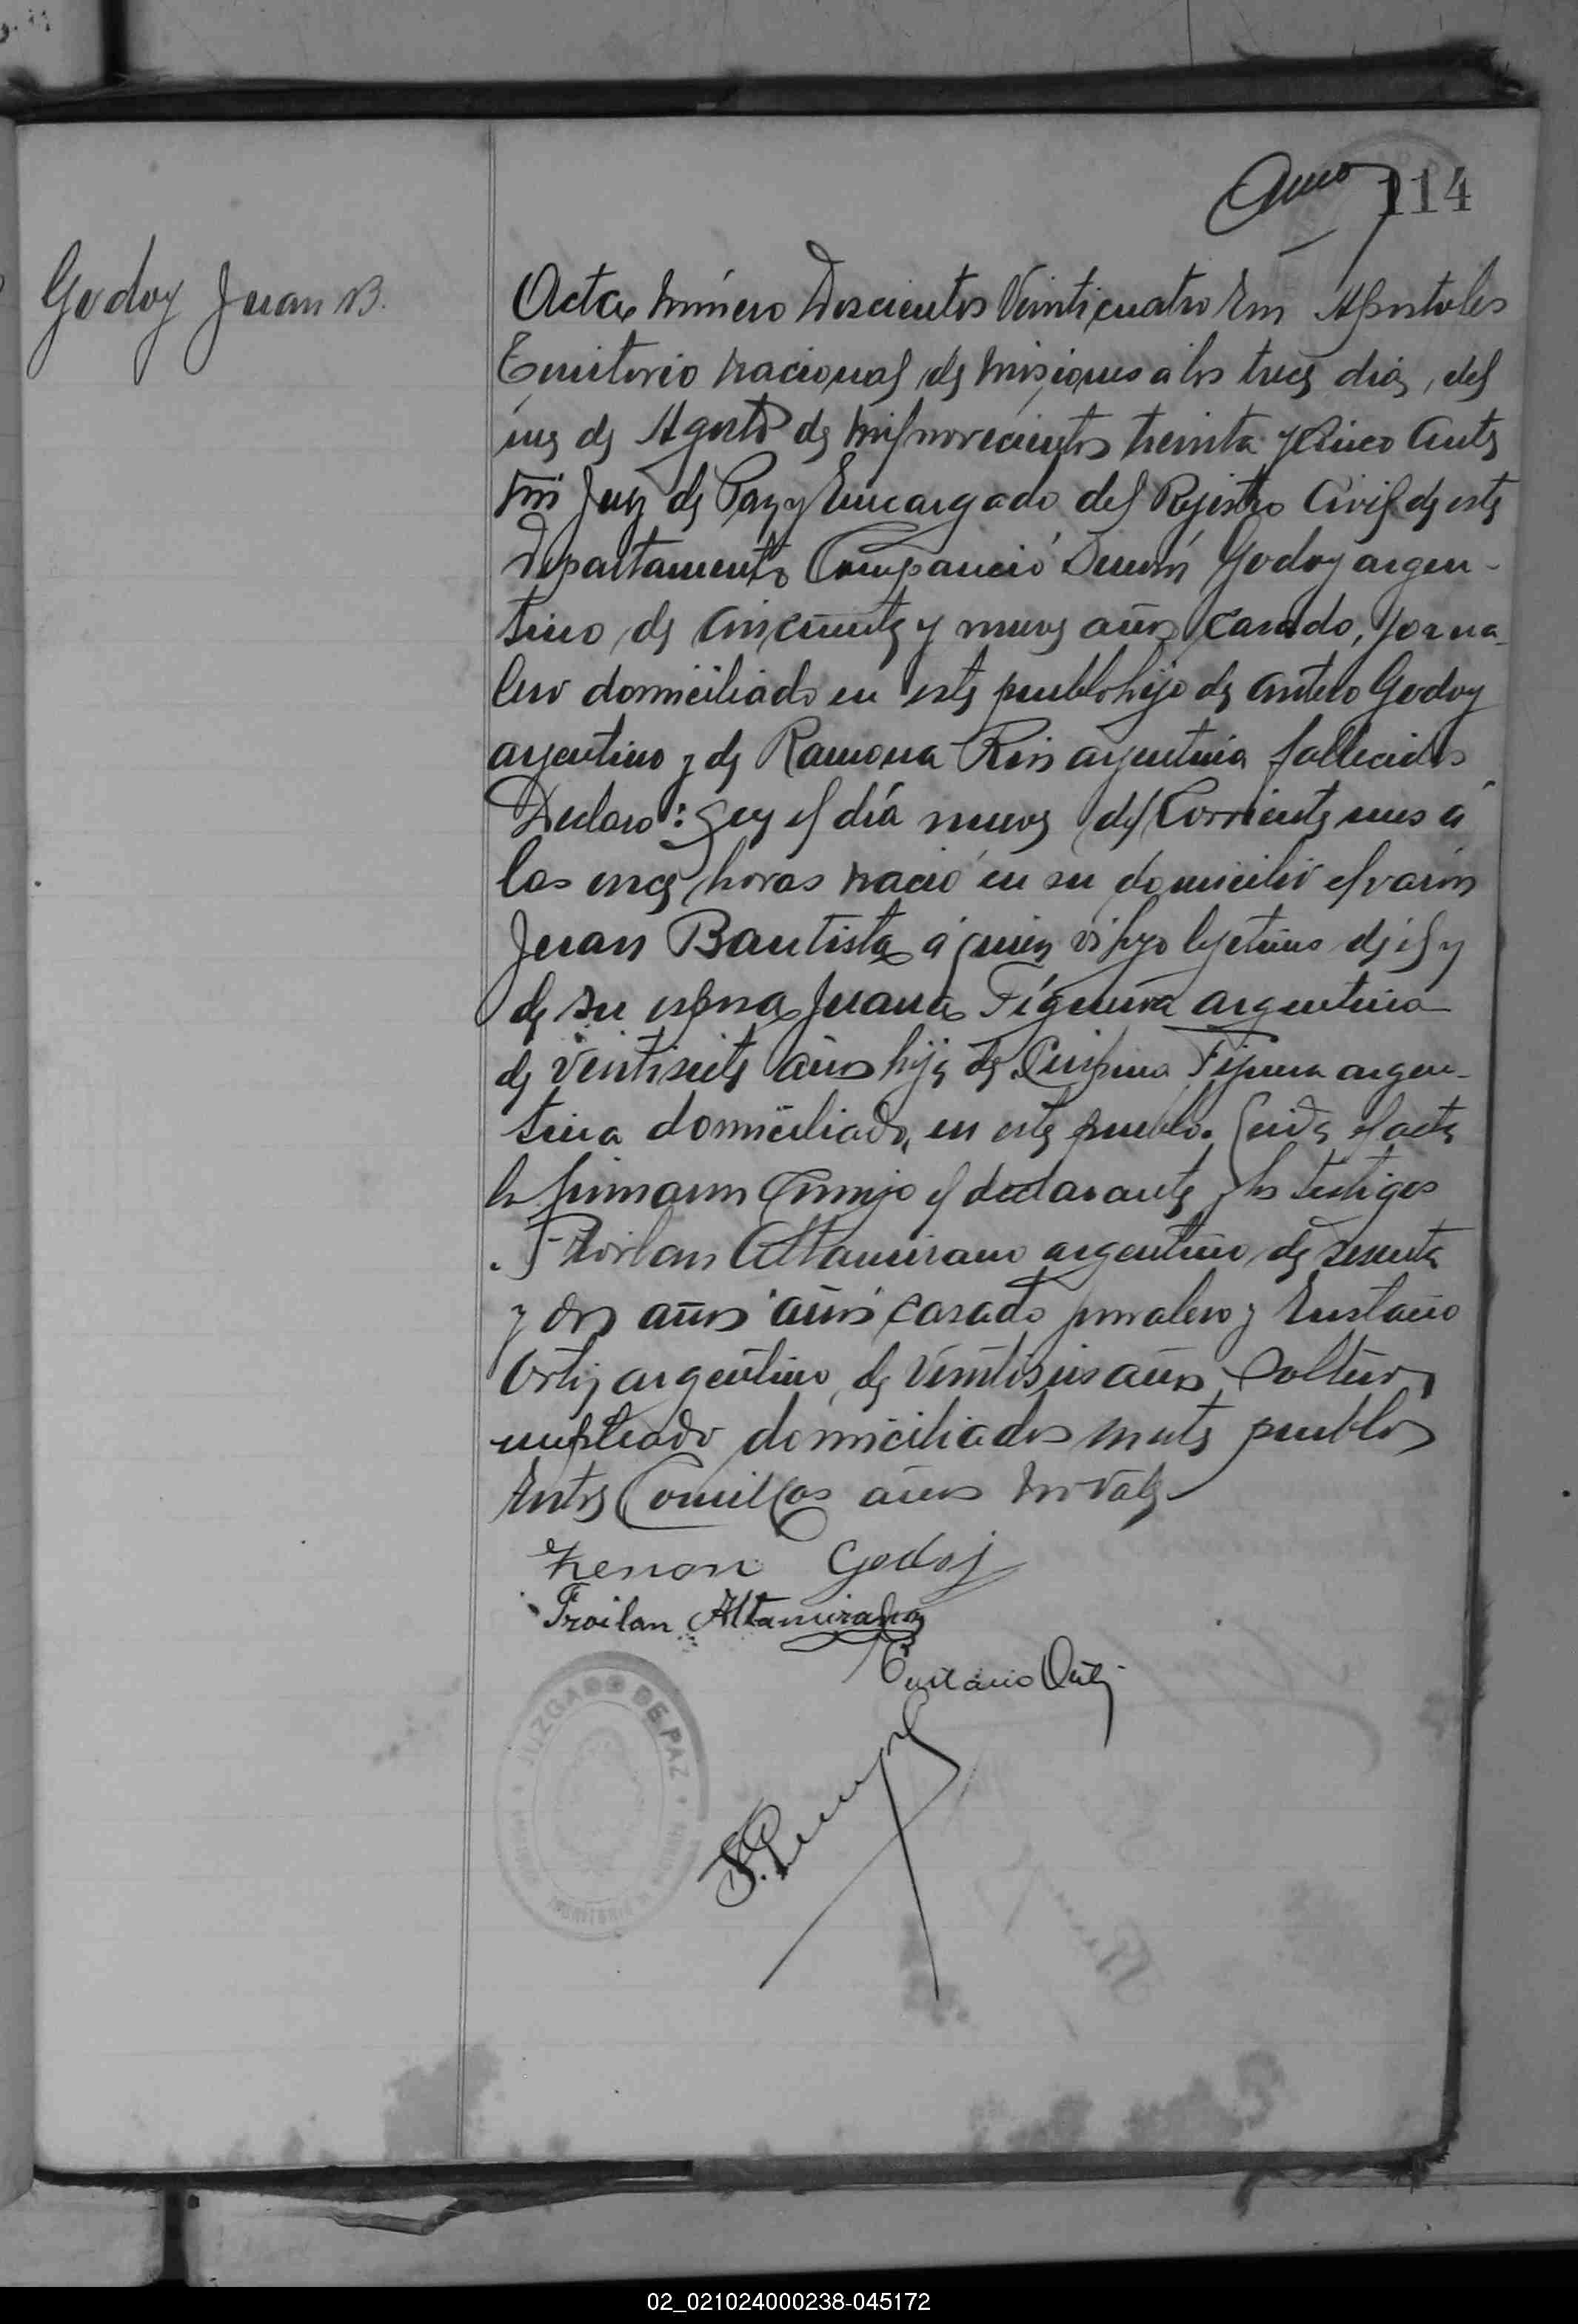 114
Godoy Juan B.
Acta Número Doscientos Veinticuatro En Apostoles
Territorio nacional de Misiones a los trece dias del
mes de Agosto de mil novecientos treinta y Cinco Ante
mi Juez de Paz y Encargado del Rejistro Civil de este
Departamento Compareció Godoy argen-
tino de cincuenta y nueve años casado, jorna-
lero domiciliado en este pueblo hijo de Antero Godoy
argentino y de Ramona Rios argentina fallecidos
Declaro: Que el día nueve del Corriente mes á
las once horas nació en su domicilio el varón
Juan Bautista á quien vi hijo lejetimo de él y
de su esposa Juana Figueira argentina
de ventisiete años hija de Figuera argen-
tina domiciliada en este pueblo. Leida el acta
la firmaron Conmigo el declarante y los testigos
Froilan Altamirano argentino de sesenta
y dos años "años" casado jornalero y Eustacio
Ortiz argentino de ventiseis años soltero
empleado domiciliados en este pueblo
Entre Comillas años no vale
Zenon Godoy
Froilan Altamirano
Eustacio Ortiz
JUZGADO DE PAZ
02_021024000238-045172